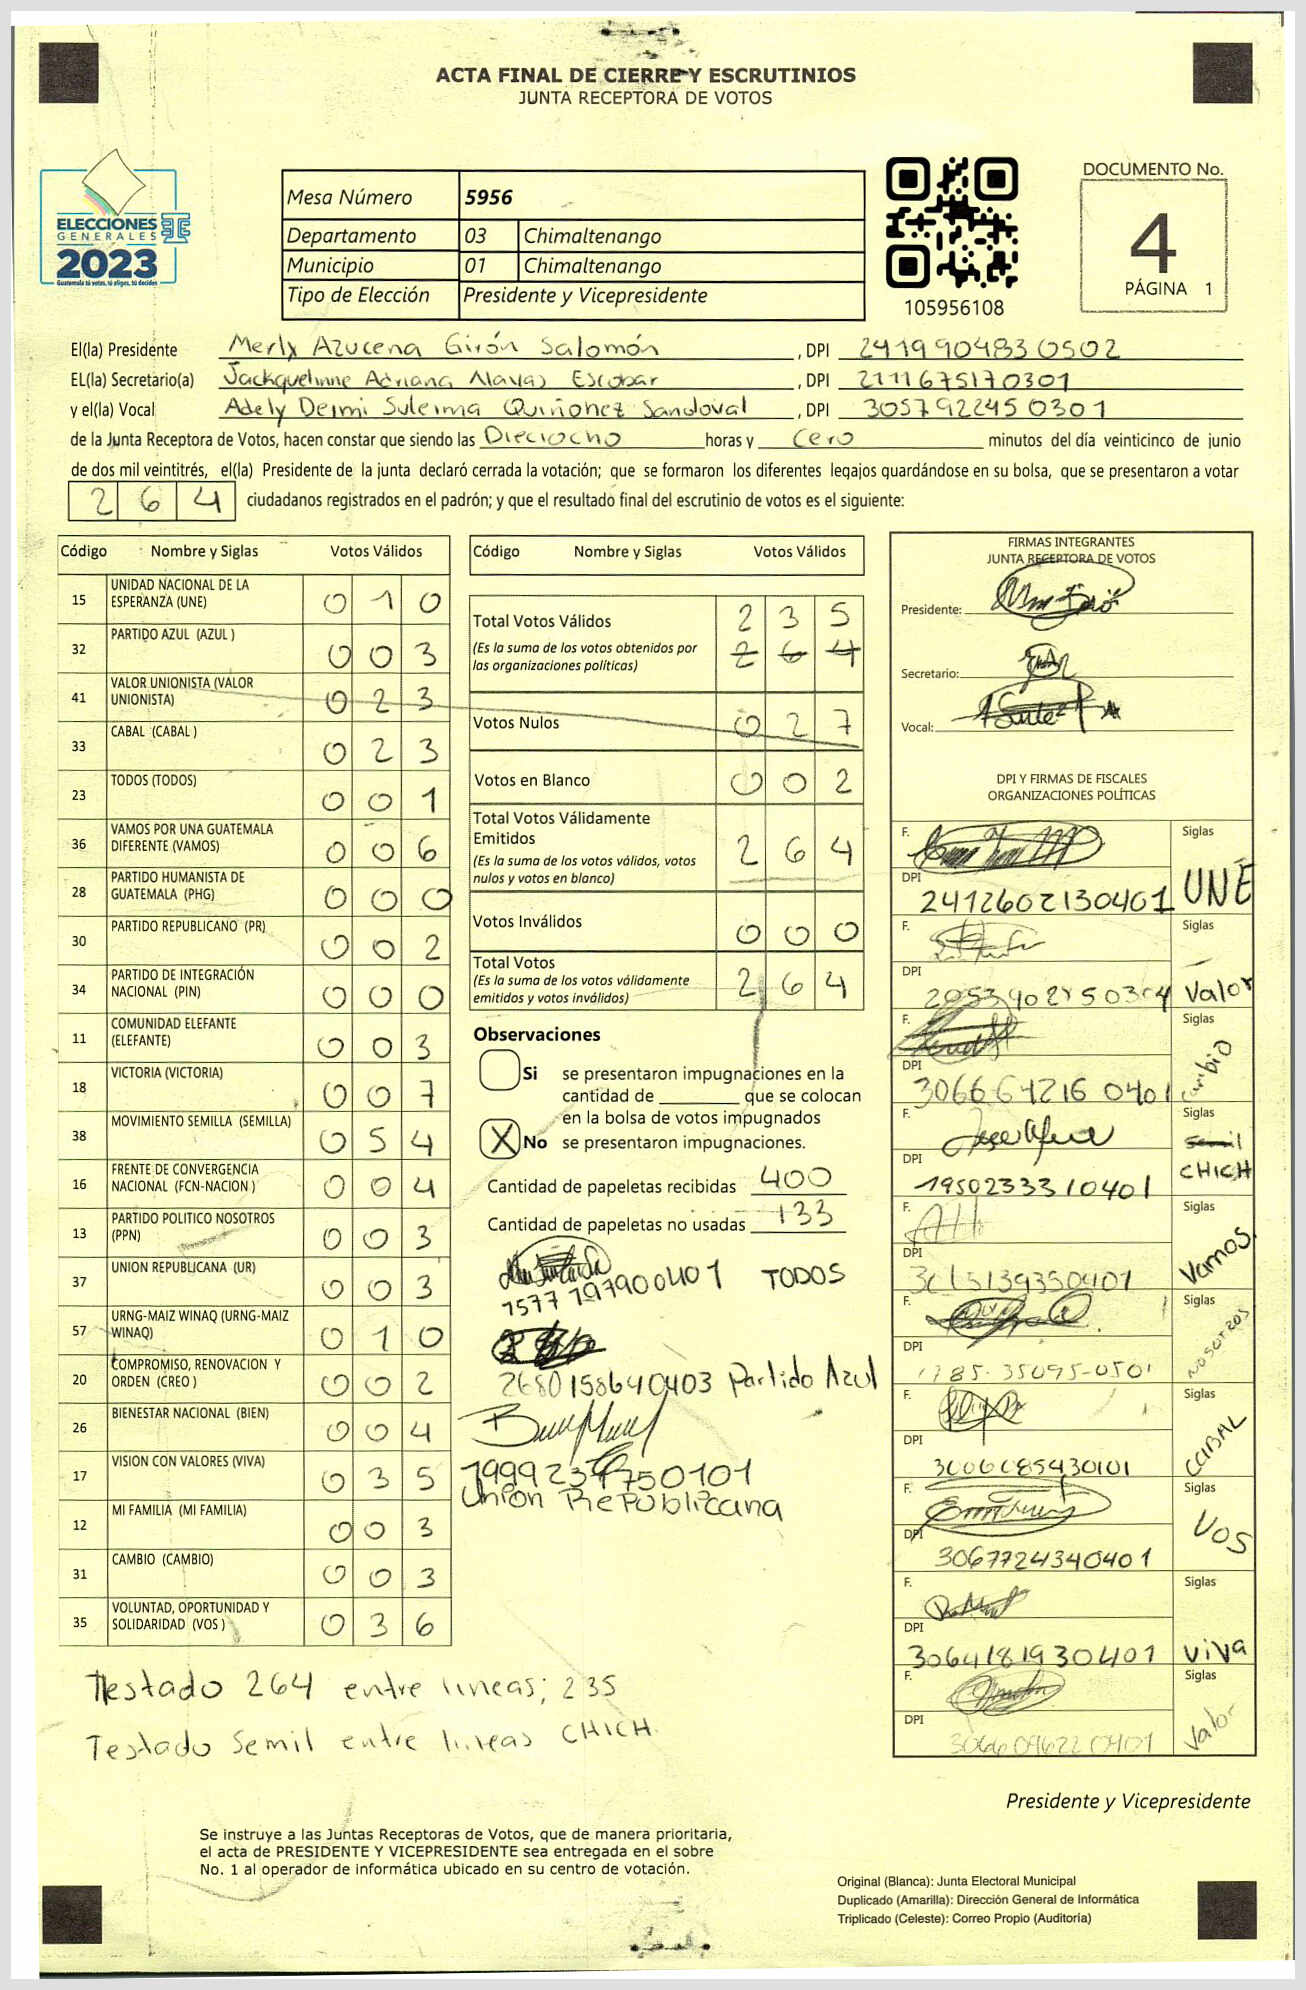 ACTA FINAL DE CIERRE Y ESCRUTINIOS
JUNTA RECEPTORA DE VOTOS
ELECCIONES
GENERALES
2023
Guatemala tú votas, tú eliges, tú decides
Mesa Número 5956
Departamento 03 Chimaltenango
Municipio 01 Chimaltenango
Tipo de Elección Presidente y Vicepresidente
105956108
DOCUMENTO No.
4
PÁGINA 1
El(la) Presidente Merly Azucena Girón Salomón, DPI 2419904830502
EL(la) Secretario(a) Jackquelinne Adriana Escobar, DPI 2111675170301
y el(la) Vocal Adely Deimi Suleima Quiñonez Sandoval, DPI 3057922450301
de la Junta Receptora de Votos, hacen constar que siendo las Dieciocho horas y Cero minutos del día veinticinco de junio
de dos mil veintitrés, el(la) Presidente de la junta declaró cerrada la votación; que se formaron los diferentes legajos guardándose en su bolsa, que se presentaron a votar
264 ciudadanos registrados en el padrón; y que el resultado final del escrutinio de votos es el siguiente:
Código Nombre y Siglas Votos Válidos
15 UNIDAD NACIONAL DE LA ESPERANZA (UNE) 010
32 PARTIDO AZUL (AZUL ) 003
41 VALOR UNIONISTA (VALOR UNIONISTA) 023
33 CABAL (CABAL ) 023
23 TODOS (TODOS) 001
36 VAMOS POR UNA GUATEMALA DIFERENTE (VAMOS) 006
28 PARTIDO HUMANISTA DE GUATEMALA (PHG) 000
30 PARTIDO REPUBLICANO (PR) 002
34 PARTIDO DE INTEGRACIÓN NACIONAL (PIN) 000
11 COMUNIDAD ELEFANTE (ELEFANTE) 003
18 VICTORIA (VICTORIA) 007
38 MOVIMIENTO SEMILLA (SEMILLA) 054
16 FRENTE DE CONVERGENCIA NACIONAL (FCN-NACION ) 004
13 PARTIDO POLITICO NOSOTROS (PPN) 003
37 UNION REPUBLICANA (UR) 003
57 URNG-MAIZ WINAQ (URNG-MAIZ WINAQ) 010
20 COMPROMISO, RENOVACION Y ORDEN (CREO ) 002
26 BIENESTAR NACIONAL (BIEN) 004
17 VISION CON VALORES (VIVA) 035
12 MI FAMILIA (MI FAMILIA) 003
31 CAMBIO (CAMBIO) 003
35 VOLUNTAD, OPORTUNIDAD Y SOLIDARIDAD (VOS ) 036
Código Nombre y Siglas Votos Válidos
Total Votos Válidos 235
(Es la suma de los votos obtenidos por las organizaciones políticas) 264
Votos Nulos 027
Votos en Blanco 002
Total Votos Válidamente Emitidos
(Es la suma de los votos válidos, votos nulos y votos en blanco) 264
Votos Inválidos 000
Total Votos
(Es la suma de los votos válidamente emitidos y votos inválidos) 264
Observaciones
Si se presentaron impugnaciones en la
cantidad de que se colocan
en la bolsa de votos impugnados
X No se presentaron impugnaciones.
Cantidad de papeletas recibidas 400
Cantidad de papeletas no usadas 133
1577 197900401 TODOS
2680158640403 Partido Azul
Union Republicana
FIRMAS INTEGRANTES
JUNTA RECEPTORA DE VOTOS
Presidente:
Secretario:
Vocal:
DPI Y FIRMAS DE FISCALES
ORGANIZACIONES POLÍTICAS
F. Siglas
DPI 2412602130401 UNE
F. Siglas
DPI Valor
F. Siglas
DPI 3066642160401
F. Siglas
semil
DPI 1950233310401 CHICH
F. Siglas
DPI 3015139350401 Vamos
F. Siglas
DPI 1785-35095-0501 NOSOTROS
F. Siglas
DPI 3006085430101 CABAL
F. Siglas
DPI 3067724340401 VOS
F. Siglas
DPI 3064181930401 VIVA
F. Siglas
DPI 3066096220401 Valor
Testado 264 entre lineas; 235
Testado Semil entre lineas CHICH.
Presidente y Vicepresidente
Se instruye a las Juntas Receptoras de Votos, que de manera prioritaria,
el acta de PRESIDENTE Y VICEPRESIDENTE sea entregada en el sobre
No. 1 al operador de informática ubicado en su centro de votación.
Original (Blanca): Junta Electoral Municipal
Duplicado (Amarilla): Dirección General de Informática
Triplicado (Celeste): Correo Propio (Auditoría)